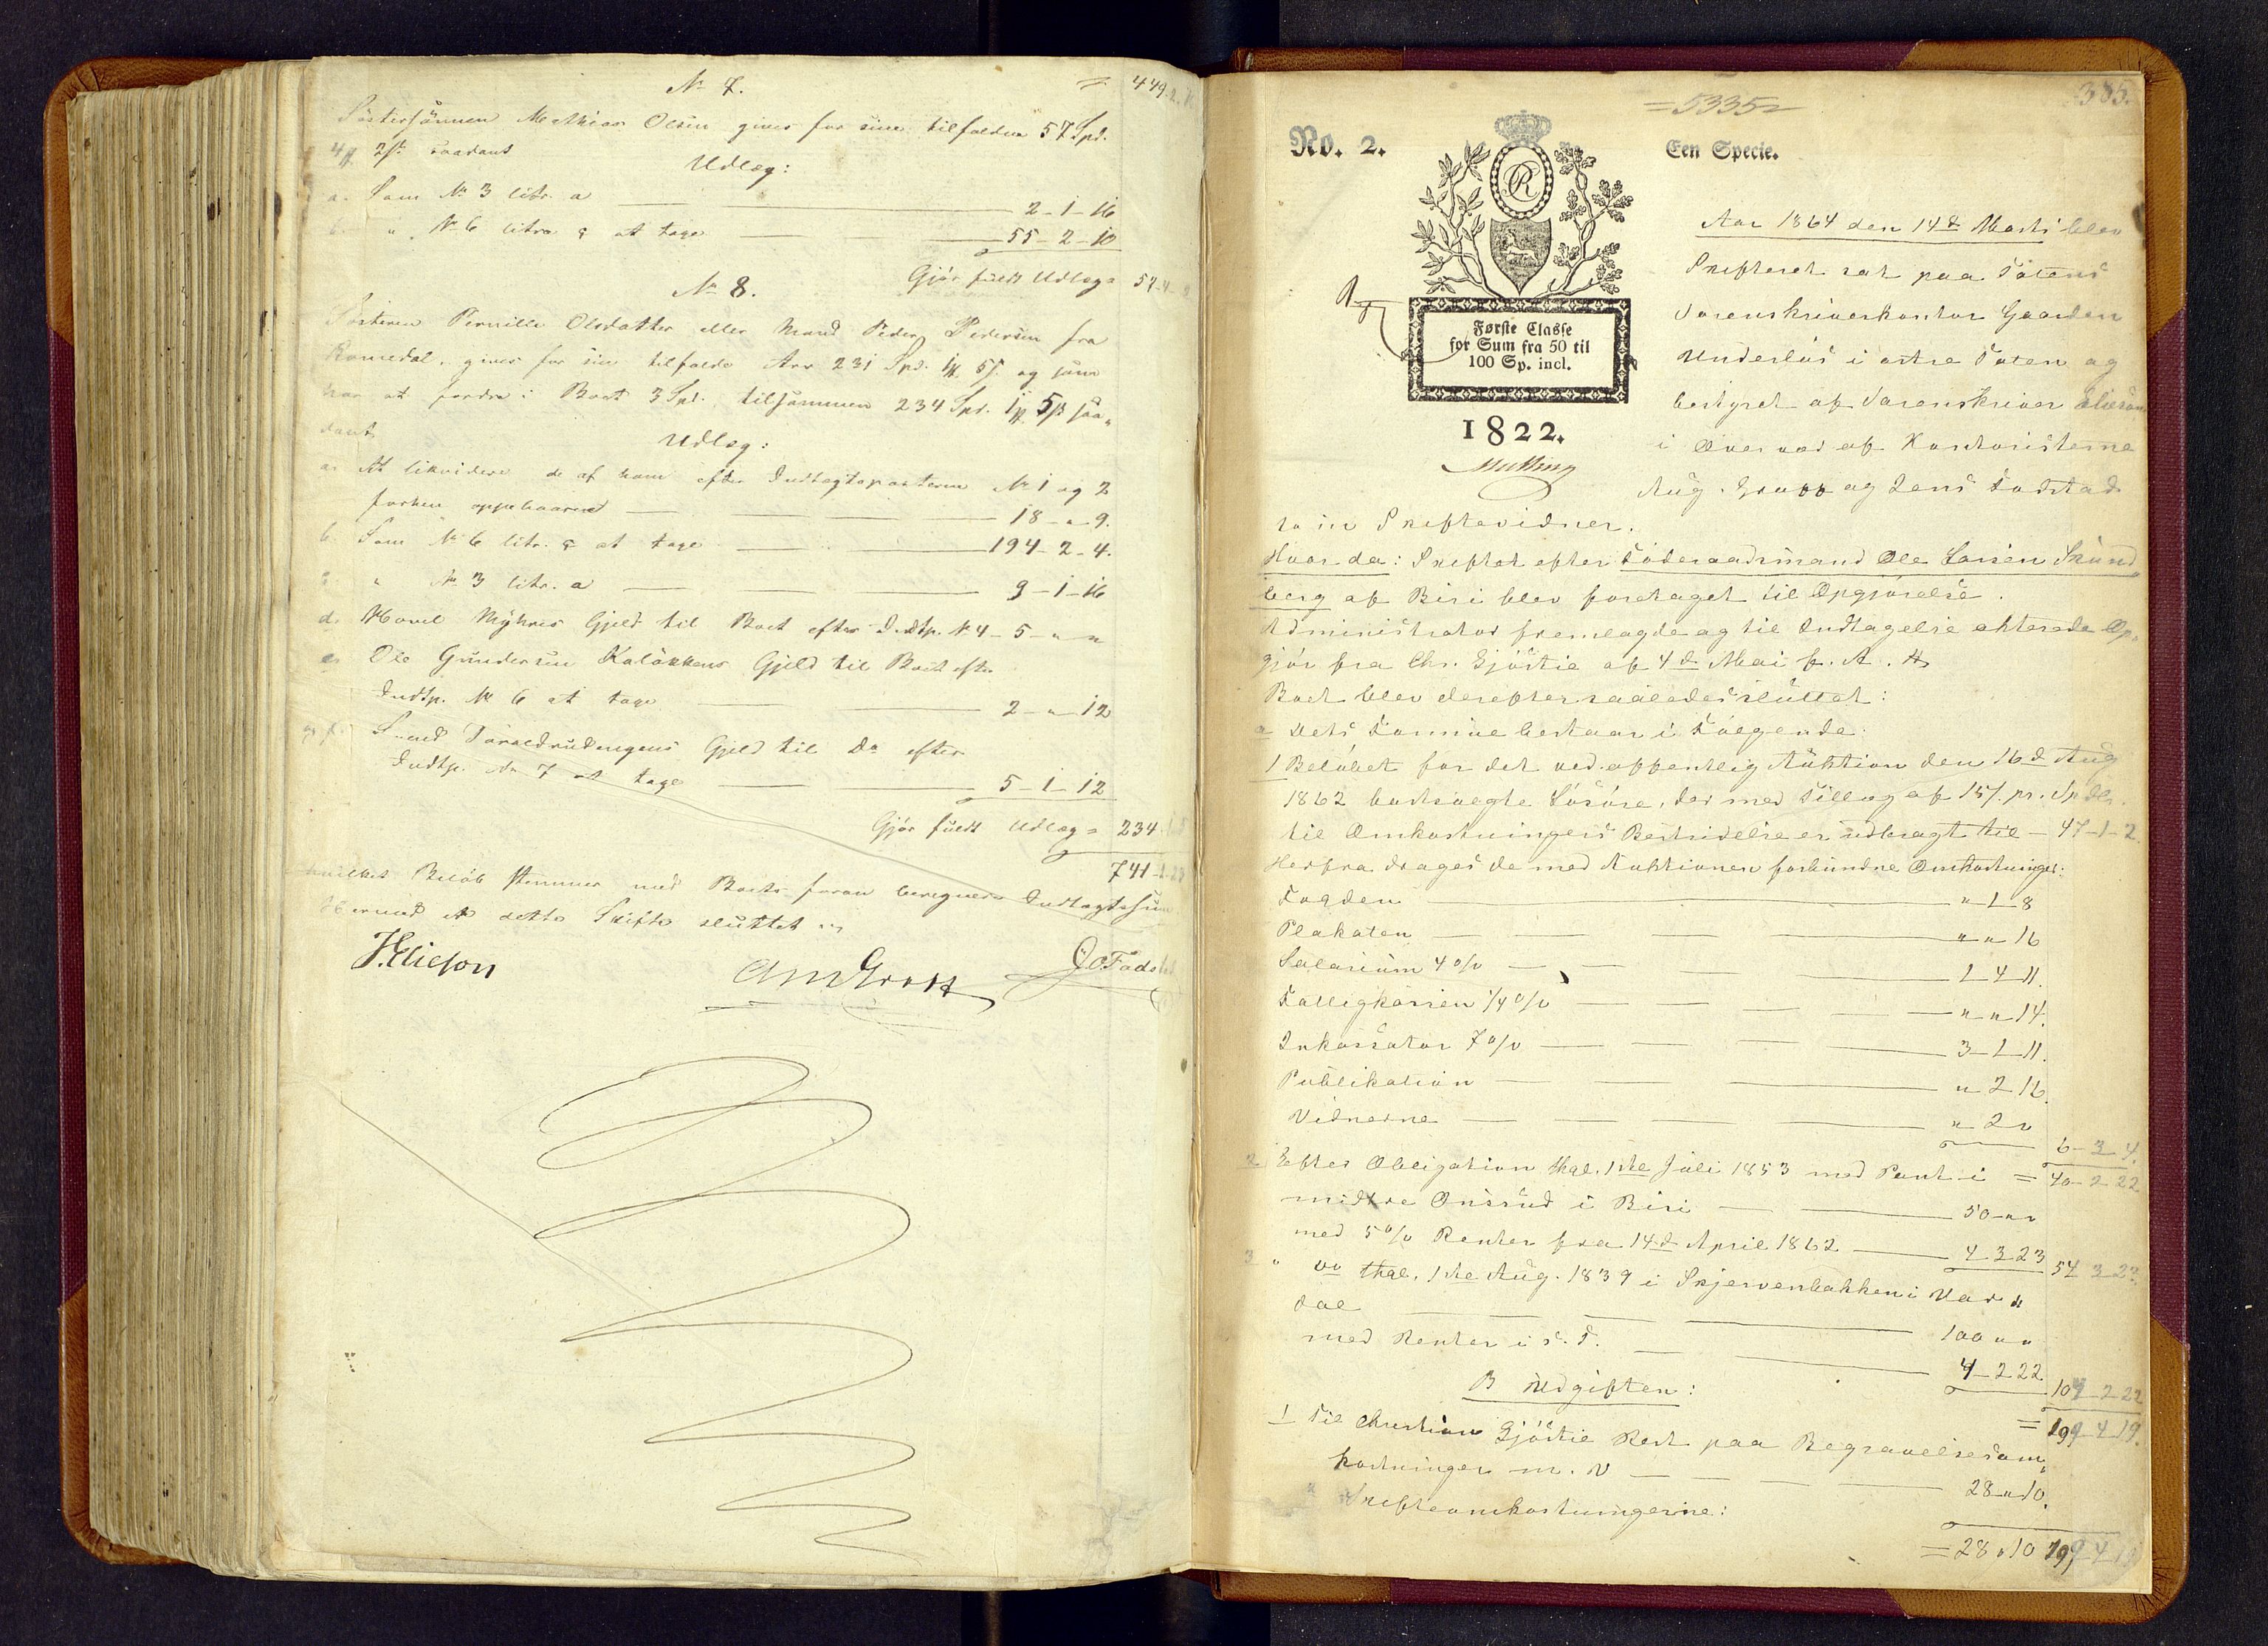 No 7.
= 449-2.
Søstersønnen Mathias Olsen gives for sine tilfaldne 57 Spd.
4 ƒ 2 s. saadant
Udlæg:
a. Som No 3 litr. a 2-1-16
b. " No 6 litra c at tage 55-2-10
Gjør fuldt Udlæg = 57-4-
No 8.
Søsteren Pernille Olsdatter eller Mand Peder Pedersen fra
Romedal, gives for sin tilfaldne Arv 231 Spd. 1 ƒ 5 s. og som
har at fordre i Boet 3 Spd. tilsammen 234 Spd. 1 ƒ 5 ß saa-
dant
Udlæg:
a. At likvidere de af ham efter Indtægtsposterne No 1 og 2
forhen oppebaarne 18 - " 9.
b. Som No 6 litr. c at tage 194-2-4.
c. " No 3 litr. a 9-1-16
d. Hovel Myhres Gjeld til Boet efter Indtp. No 4 - 5 - " "
e. Ole Gundersen Kalökkens Gjeld til Boet efter
Indtp. No 6 at tage 2 - " 12
f. Svend Gjeld til Do efter
Indtp. No 7 at tage 5-1-12
Gjør fuldt Udlæg = 234
741
hvilket Beløb stemmer med Boets foran beregnede Indtægtssum
Hermed er dette Skifte sluttet
J. Elieson
Am Gropp
J O Fodstad
= 5335 =
385.
No. 2.
Een Specie.
R
Første Classe
for Sum fra 50 til
100 Sp. incl.
1822.
Aar 1864 den 14de Marts blev
Skifteret sat paa Totens
Sorenskriverkontor Gaarden
Underlos i østre Toten og
bestyret af Sorenskriver Elieson
i Overvær af Kontoristerne
Aug. Gropp og Jens Fodstad
som Skiftevidner.
Hvor da: Skiftet efter Föderaadsmand Ole Larsen Skund
berg af Biri blev foretaget til Opgjørelse.
Administrator fremlagde og til Indtagelse Op-
gjør fra Chr. Gjöstie af 4de Mai f. A.
Boet blev derefter saaledes sluttet:
a Dets Formue bestaar i Følgende:
1 Beløbet for det ved offentlig Auktion den 16de Aug
1862 bortsolgte Løsøre, der med Tillæg af 15 s. pr. Spdlr.
til Omkostningers Bestridelse er udbragt til - 47-1-2
Herfra drages de med Auktionen forbundne Omkostninger:
Fogden " 1-8
Plakaten " " 16
Salarium 4 % 1-4-11.
Fattigkassen 1/4 % " " 14.
Inkassator 7 % 3-1-11.
Publikation " 2 16.
Vidnerne " 2 "
6-3-4.
= 40-2-22
2 Efter Obligation thgl. 1ste Juli 1853 med Pant i
midtre Onsrud i Biri 50 " "
med 5 % Renter fra 14de April 1862 4 3 23
54 3 23
3 " Do thgl. 1ste Aug. 1839 i Skjervenbakken i Var-
dal 100 " "
med Renter i s. T. 4-2 22
104-2 22
= 199-4 19.
B Udgiften:
1 Til Christian Gjöstie Rest paa Begravelsesom-
kostninger m. V 28 " 10.
Skifteomkostningerne:
= 28 " 10 199 4 19